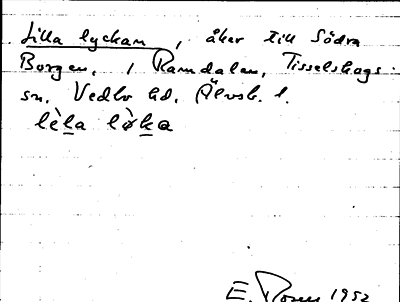 Lilla lyckan, åker till Södra
Borgen, i Ramdalen, Tisselskogs
sn. Vedbo hd. Älvsb. l.
lè̀la lø̀ka
E. 1952